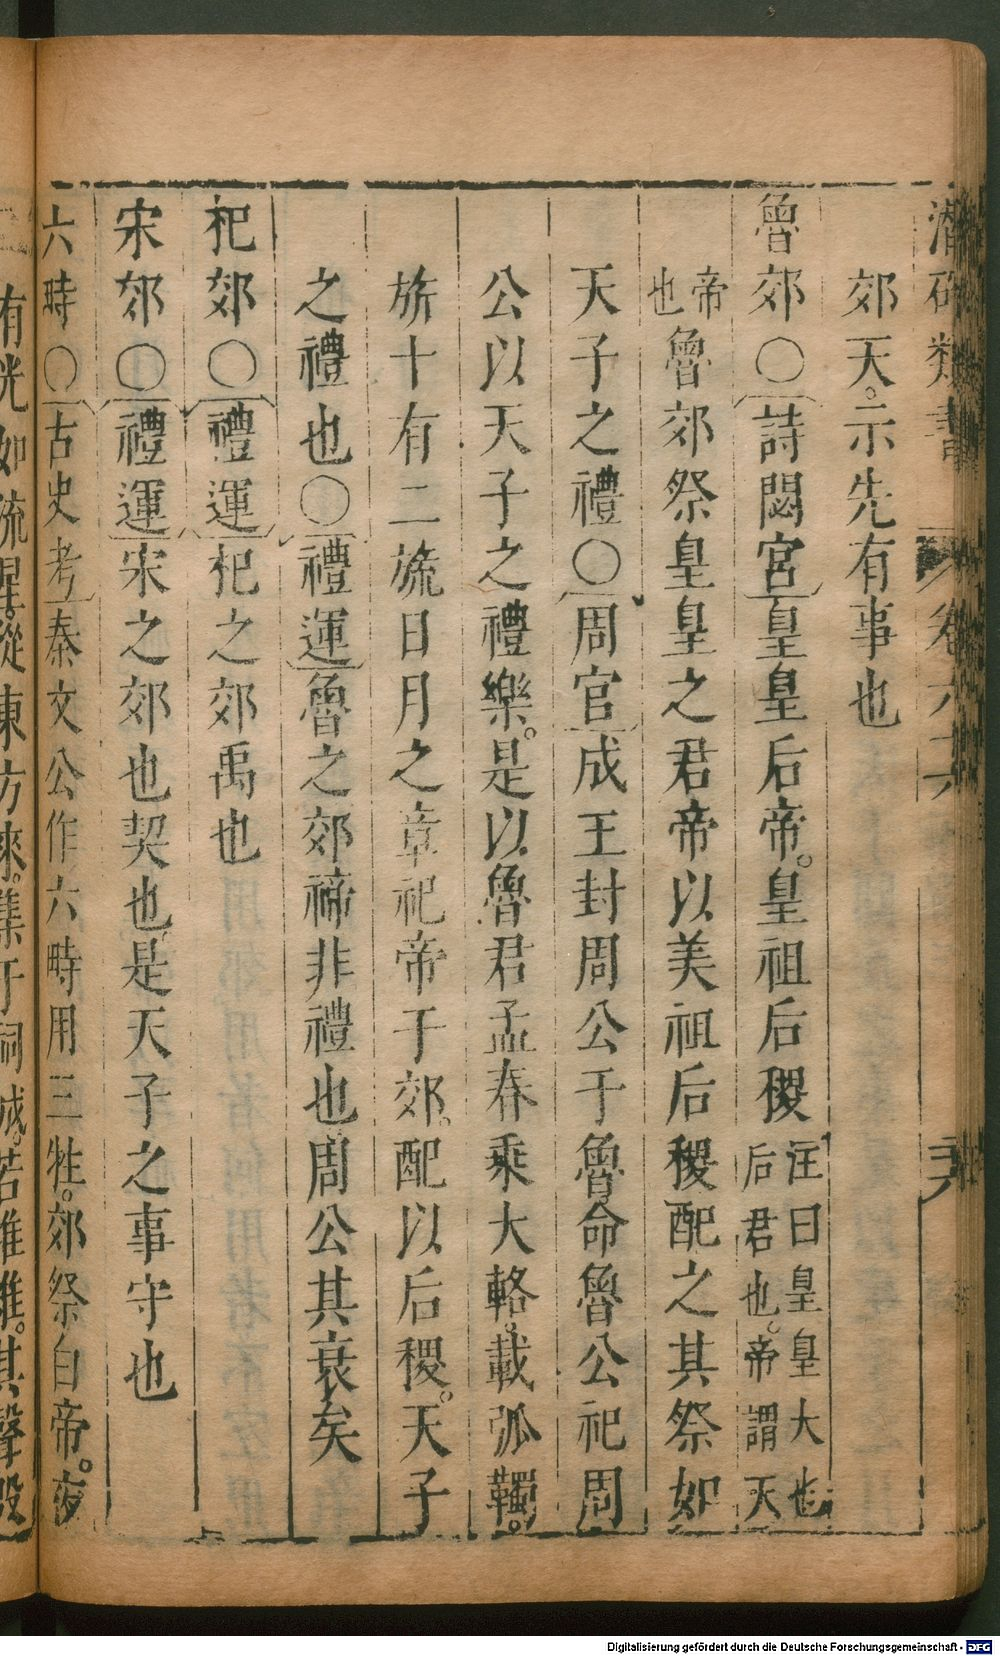 潛确類書 卷六十
郊天。示先有事也
魯郊○詩閟宮皇皇后帝。皇祖后稷注曰皇皇大也后君也。帝謂天
帝也魯郊祭皇皇之君帝以美祖后稷配之其祭如
天子之禮○周官成王封周公于魯命魯公祀周
公以天子之禮樂。是以魯君孟春乘大輅。載弧韣。
旂十有二旒日月之章祀帝于郊。配以后稷。天子
之禮也○禮運魯之郊禘非禮也周公其衰矣
杞郊○禮運杞之郊禹也
宋郊○禮運宋之郊也契也是天子之事守也
六時○古史考秦文公作六時用三牲。郊祭白帝。夜
有光如流星。從東方來。集于祠城。若雄雉。其聲殷
Digitalisierung gefördert durch die Deutsche Forschungsgemeinschaft - DFG